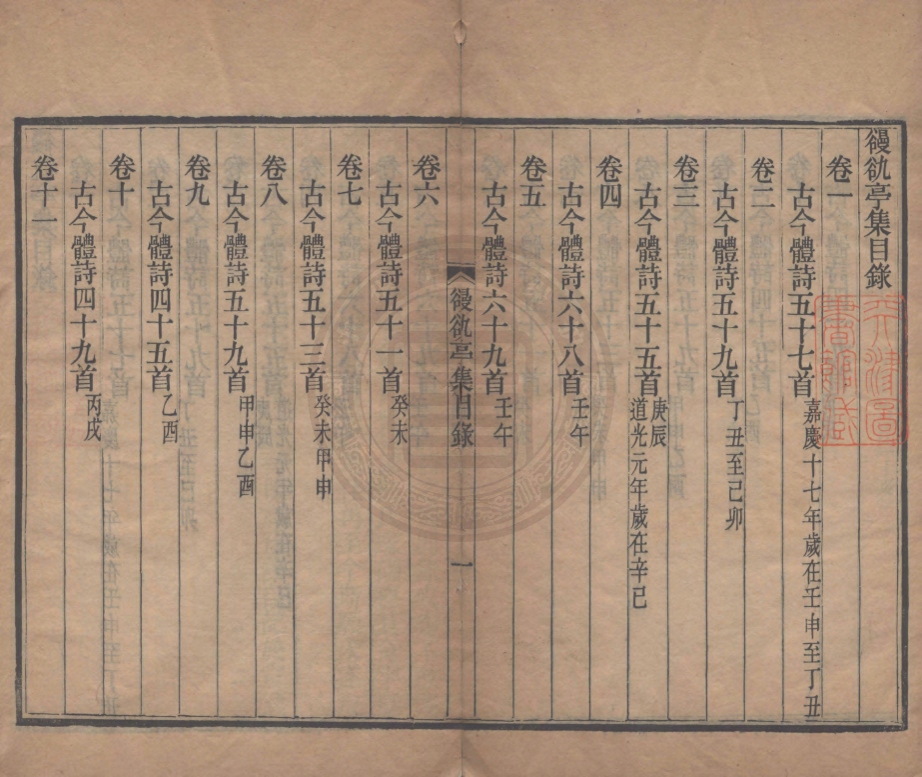 䜱䜪亭集目錄
卷一
古今體詩五十七首 嘉慶十七年歲在壬申至丁丑
卷二
古今體詩五十九首 丁丑至己卯
卷三
古今體詩五十五首 庚辰 道光元年歲在辛巳
卷四
古今體詩六十八首 壬午
卷五
古今體詩六十九首 壬午
䜱䜪亭集目錄 一
卷六
古今體詩五十一首 癸未
卷七
古今體詩五十三首 癸未甲申
卷八
古今體詩五十九首 甲申乙酉
卷九
古今體詩四十五首 乙酉
卷十
古今體詩四十九首 丙戌
卷十一
天津圖
書館藏